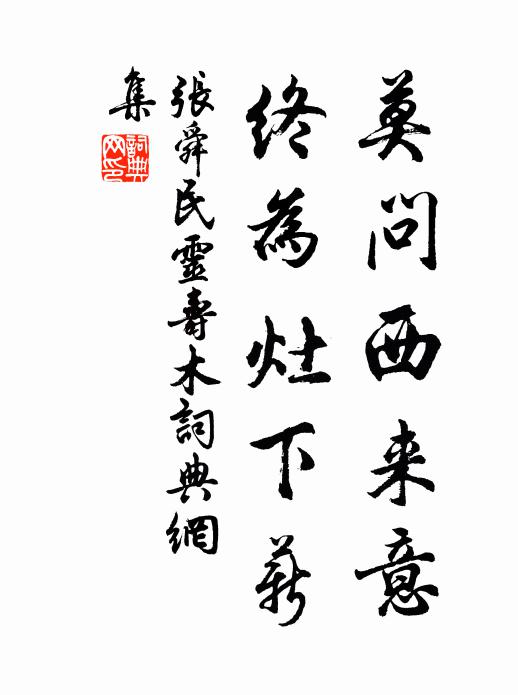 莫問西来意
終為灶下薪
張舜民靈壽木詞典網
集
詞典
网印